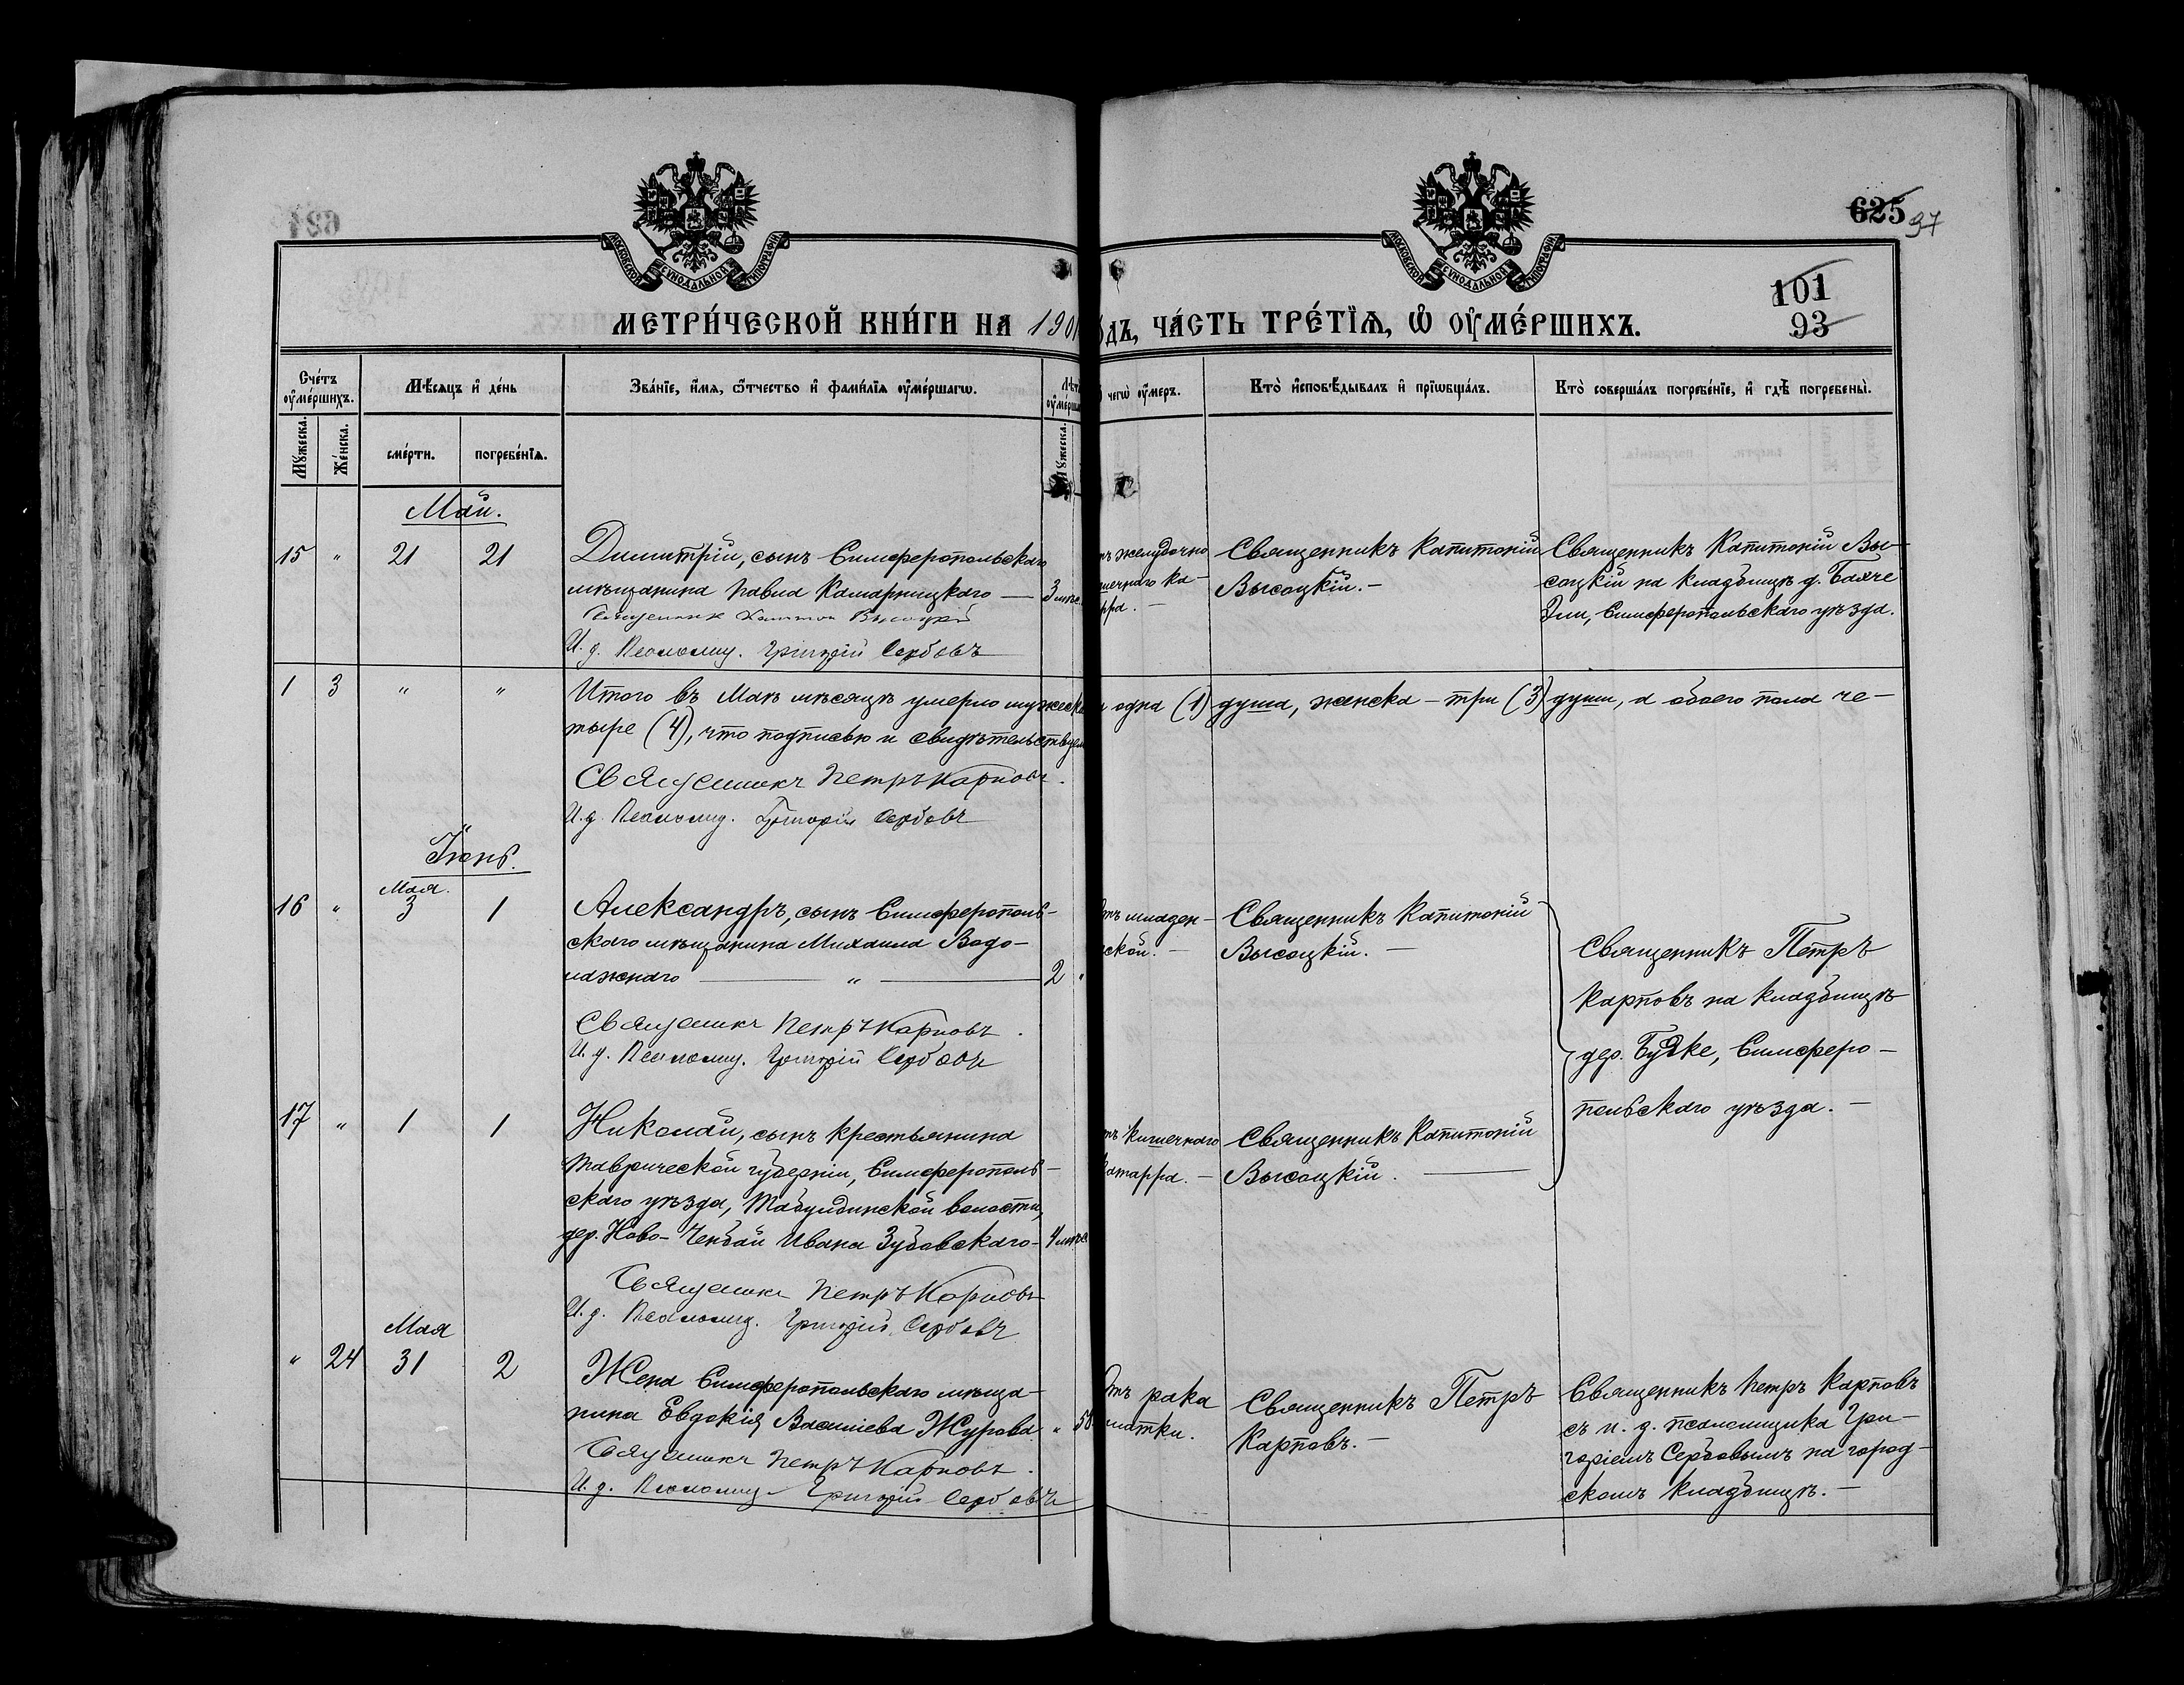 625 97
101
93
МОСКОВСКОЙ СѴНОДАЛЬНОЙ ТИПОГРАФІИ
МОСКОВСКОЙ СѴНОДАЛЬНОЙ ТИПОГРАФІИ
МЕТРИ́ЧЕСКОЙ КНИ́ГИ НА 190
ОДЪ, ЧА́СТЬ ТРЕ́ТЇѦ, Ѡ ОУМЕ́РШИХЪ.
Сче́тъ оуме́ршихъ.
Мѣ́сяцъ и де́нь
Зва́нїе, и́мя, ѻ́тчество и фами́лїя оуме́ршагѡ.
Лѣт
оуме́рш
чегѡ̀ оу́меръ.
Кто̀ исповѣ́дывалъ и прїѡбща́лъ.
Кто̀ соверша́лъ погребе́нїе, и гдѣ̀ погребены̀.
Мꙋ́жеска.
Же́нска.
сме́рти.
погребе́нїѧ.
Мꙋ́жеска.
Май.
15 " 21 21
Димитрій, сынъ Симферопольскаго
мѣщанина Павла Комарницкаго — 3 мѣс.
Священникъ Капитон Высоцкій
И. д. Псаломщ. Григорій Сербовъ
тъ желудочно
шечнаго ка-
рра. —
Священникъ Капитоній
Высоцкій. —
Священникъ Капитоній Вы-
соцкій на кладбищѣ д. Бахче
Эли, Симферопольскаго уѣзда.
1 3 " "
Итого въ Маѣ мѣсяцѣ умерло мужеска одна (1) душа, женска – три (3) души, а обоего пола че-
тыре (4), что подписью и свидѣтельствуемъ
Священникъ Петръ Карповъ.
И. д. Псаломщ. Григорій Сербовъ
Іюнь.
Мая.
16 " 3 1
Александръ, сынъ Симферополь-
скаго мѣщанина Михаила Водо-
лажскаго — " — 2 "
Священникъ Петръ Карповъ.
И. д. Псаломщ. Григорій Сербовъ
тъ младен-
ской. —
Священникъ Капитоній
Высоцкій. —
Священникъ Петръ
Карповъ на кладбищѣ
дер. Буяке, Симферо-
польскаго уѣзда. —
17 " 1 1
Николай, сынъ крестьянина
Таврической губерніи, Симферополь-
скаго уѣзда, Табулдинской волости,
дер. Ново-Ченбай Ивана Зубовскаго – 4 мѣс
Священникъ Петръ Карповъ
И. д. Псаломщ. Григорій Сербовъ
тъ кишечнаго
катарра. —
Священникъ Капитоній
Высоцкій. —
Мая
" 24 31 2
Жена Симферопольскаго мѣща-
нина Евдокія Васильева Журова " 58
Священникъ Петръ Карповъ.
И. д. Псаломщ Григорій Сербовъ
тъ рака
матки.
Священникъ Петръ
Карповъ. —
Священникъ Петръ Карповъ
съ и. д. псаломщика Гри-
горіемъ Сербовымъ на город-
скомъ кладбищѣ. —